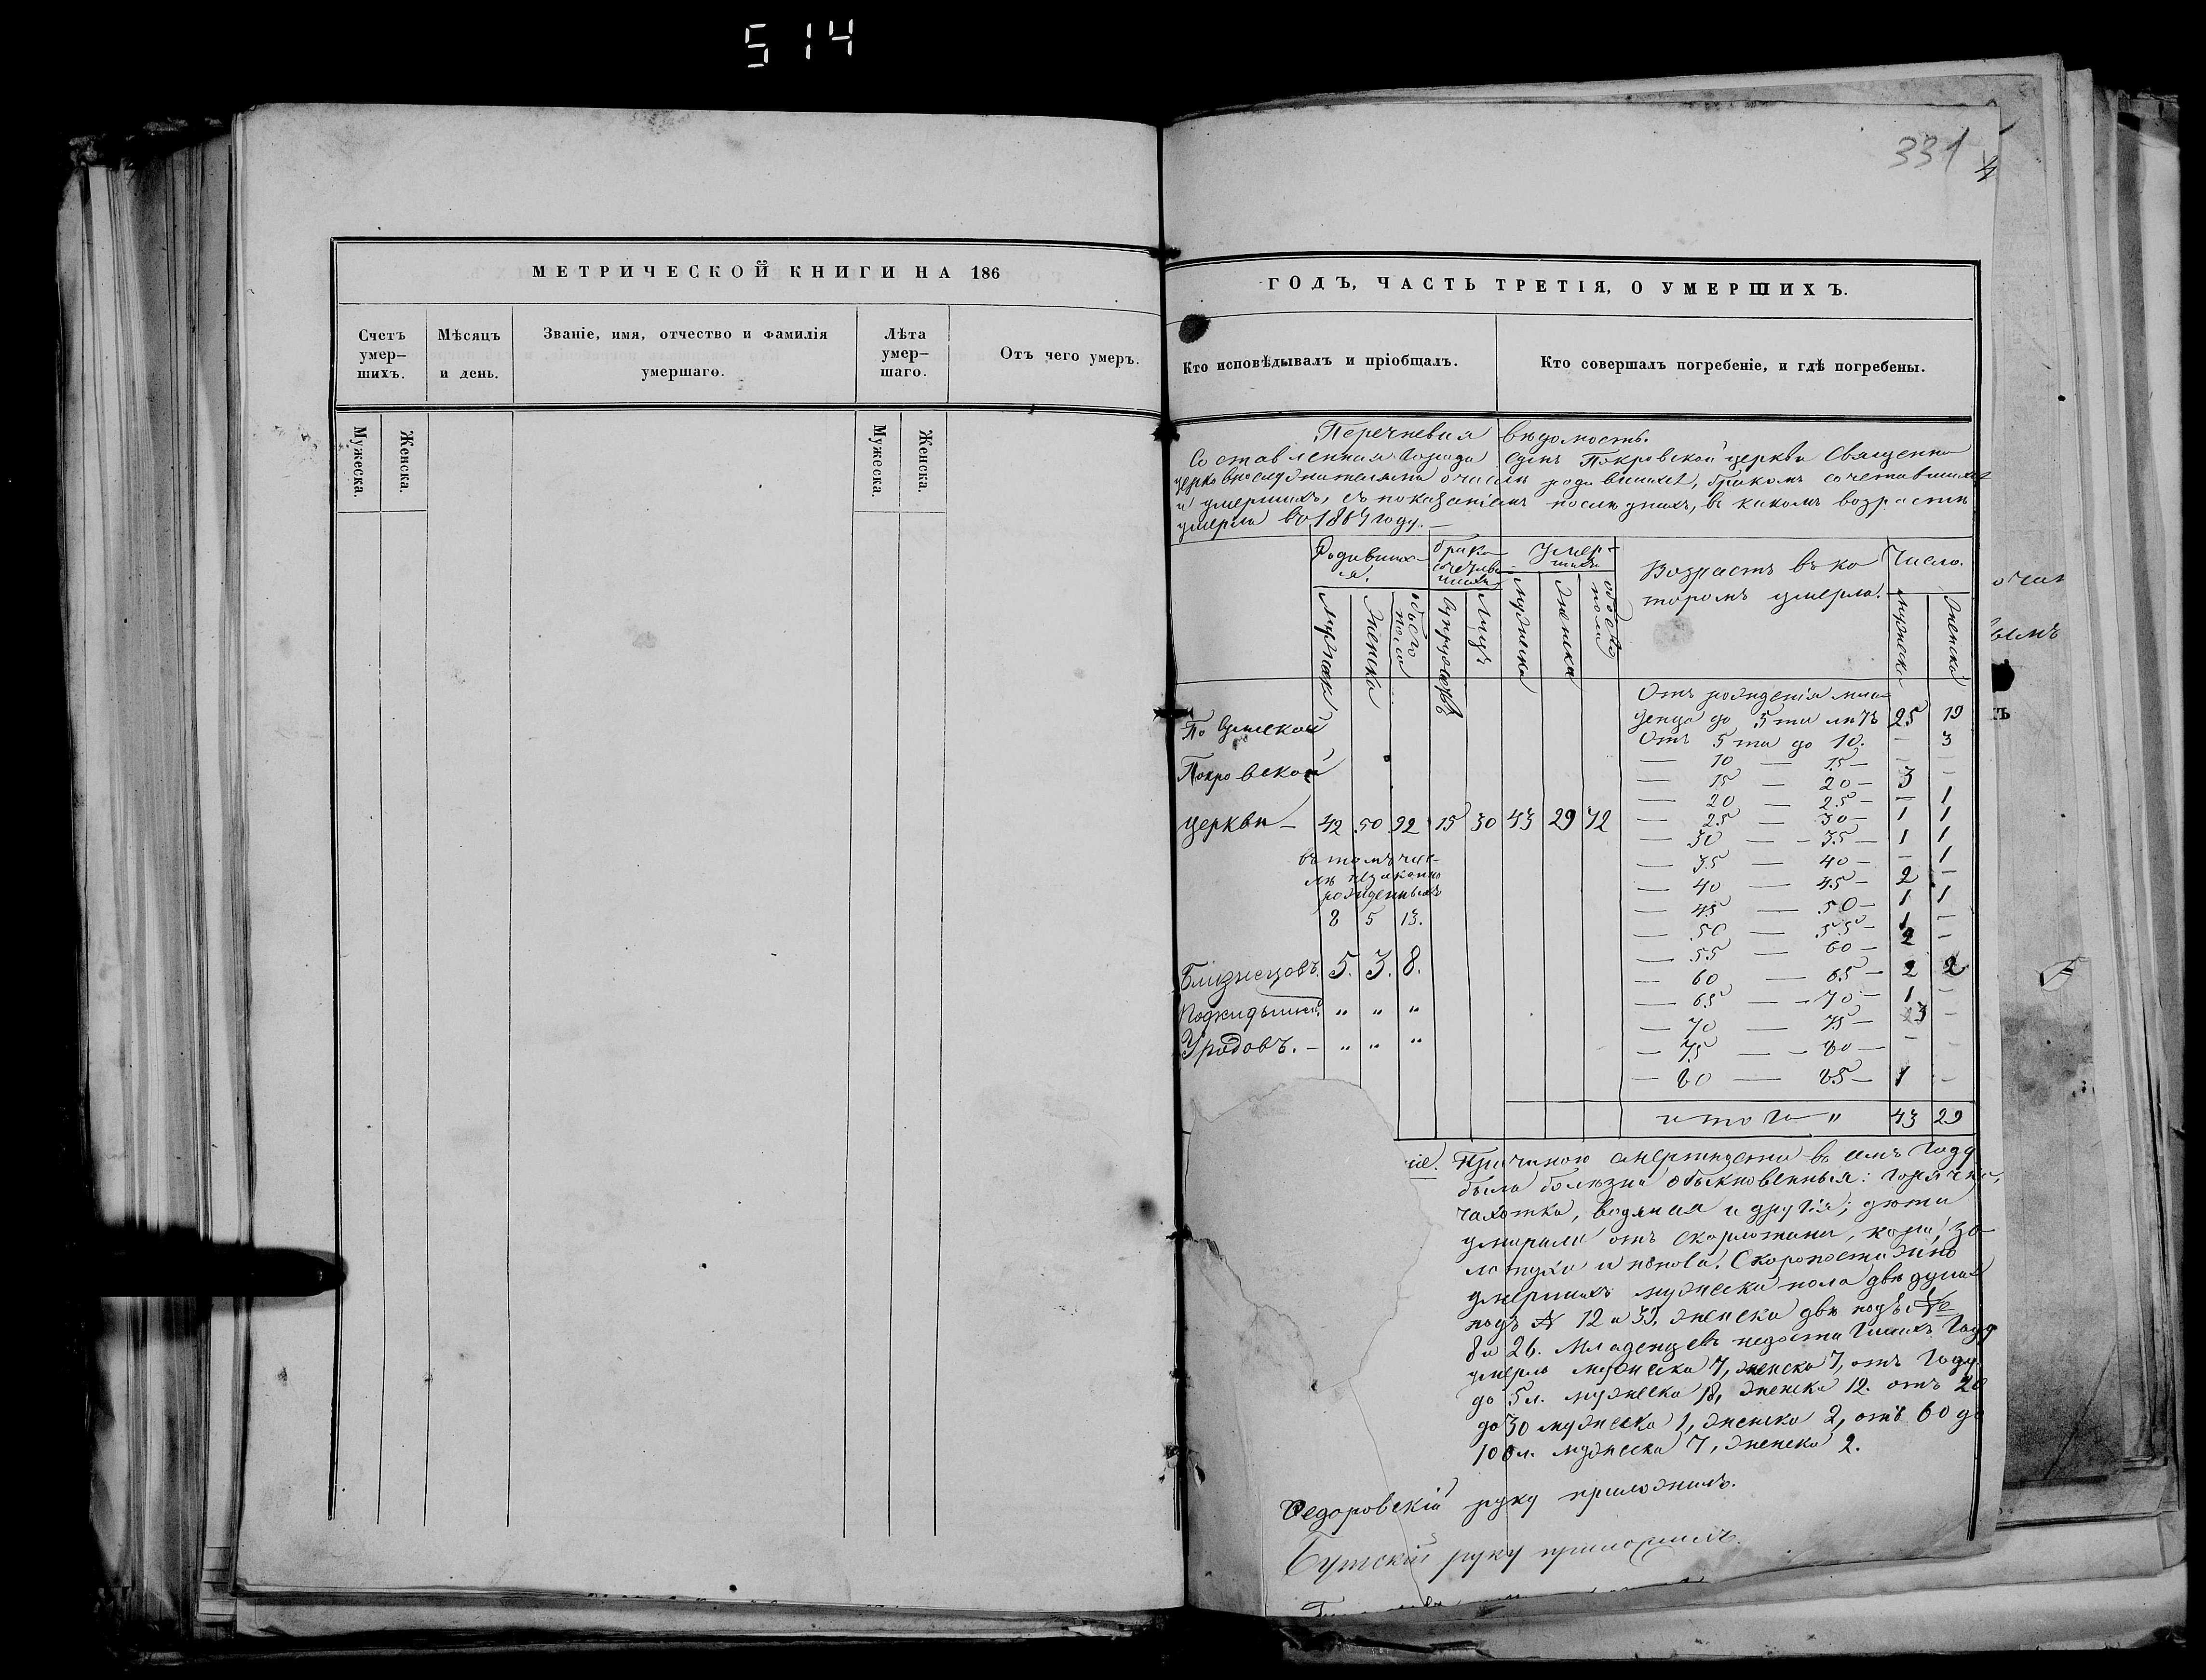 514
331
МЕТРИЧЕСКОЙ КНИГИ НА 186
Счетъ умер-
шихъ.
Мѣсяцъ
и день.
Званіе, имя, отчество и фамилія
умершаго.
Лѣта
умер-
шаго.
Отъ чего умеръ.
Мужеска.
Женска.
Мужеска.
Женска.
ГОДЪ, ЧАСТЬ ТРЕТІЯ, О УМЕРШИХЪ.
Кто исповѣдывалъ и пріобщалъ.
Кто совершалъ погребеніе, и гдѣ погребены.
Перечневая вѣдомость.
Составленная города Сумъ Покровской церкви Священно
церковнослужителями о числѣ родившихся, бракомъ сочетавшихся
и умершихъ, съ показаніемъ послѣднихъ, въ какомъ возрастѣ
умерли въ 1864 году.—
Родивших-
ся.
Умер-
шихъ
Возрастъ въ ко
торомъ умерли.
Число.
Женска
обоего
пола
Супружествъ
Лицъ
Мужеска
Женска
обоего
пола
Мужеска
Женска
По Сумской
Покровской
церкви — 42 50 92 15 30 43 29 72
въ томъ чис-
лѣ незаконно
рожденныхъ
8 5 13.
Близнецовъ. 5. 3. 8.
Подкидышей. " " "
Уродовъ. — " " "
Отъ рожденія мла
денца до 5ти лѣтъ 25 19
Отъ 5ти до 10. — 3
— 10 — 15 — — —
— 15 — 20 — 3 —
— 20 — 25 — — 1
— 25 — 30 — 1 1
— 30 — 35 — 1 1
— 35 — 40 — — 1
— 40 — 45 — 2 —
— 45 — 50 — 1 1
— 50 — 55 — 1 —
— 55 — 60 — 2 —
— 60 — 65 — 2 2
— 65 — 70 — 1 —
— 70 — 75 — 3 —
— 75 — 80 — — —
— 80 — 85 — 1 —
итого " 43 29
ніе. Причиною смертности въ семъ году
были болезни обыкновенныя: горячка,
чахотка, водяная и другія; дѣти
умирали отъ скарлатины, кори, зо-
лотухи и поноса. Скоропостижно
умершихъ мужеска пола двѣ души
подъ № 12 и 33, женска двѣ подъ №
8 и 26. Младенцевъ недостигшихъ года
умерло мужеска 7, женска 7, отъ году
до 5 л. мужеска 18, женска 12. отъ 20
до 30 мужеска 1, женска 2, отъ 60 до
100 л. мужеска 7, женска 2.
Федоровскій руку приложилъ.
руку приложилъ.